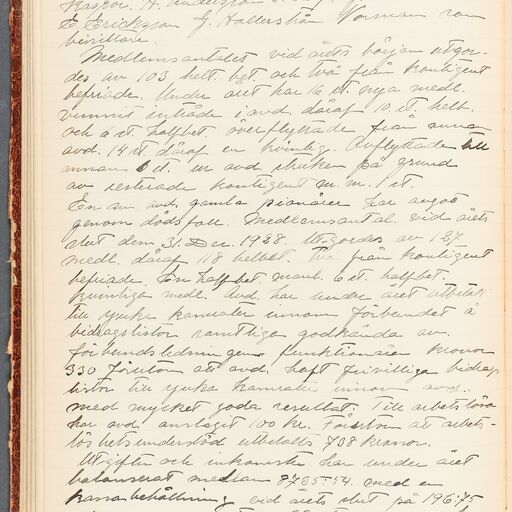 Kassör. A. Andersson
E Erickson J. Hallerstrån Norman som
bisittare.
Medlemsantalet vid årets början utgör-
des av 103 helt. bet. och två från kontigent
befriade. Under året har 16 st. nya medl.
vunnit inträde i avd. däraf 10 st. helb.
och 6 st. halfbet. överflyttade från annan
avd. 14 st. däraf en kvinlig. Avflyttade till
annan 6 st. en avd. struken på grund
av resterade kontigent m. m. 1 st.
En av avd. gamla pionärer har avgåt
genom dödsfall. Medlemsantal vid årets
slut dem 31. Dec. 1928. Utgordes av 127
medl. däraf 118 helbet. två från kontigent
befriade. En halfbet. manl. 6 st. halfbet.
kvinliga medl. Avd. har under året utbetalt
till syska kamrater innom förbundet å
bidragslistor samtliga godkända av
förbundsledningens funktionärer kronor
330 förutom att avd. haft frivilliga bidrag
listor till syuka kamrater innom avd.
med mycket goda resultat. Till arbetslösa
har avd. anslaget 100 kr. Förutom att arbets-
löshetsunderstöd utbetalts 738 kronor.
Utgifter och inkomster har under året
balanserat mellan 8735-54. med en
kassabehållning vid årets slut på 196:75